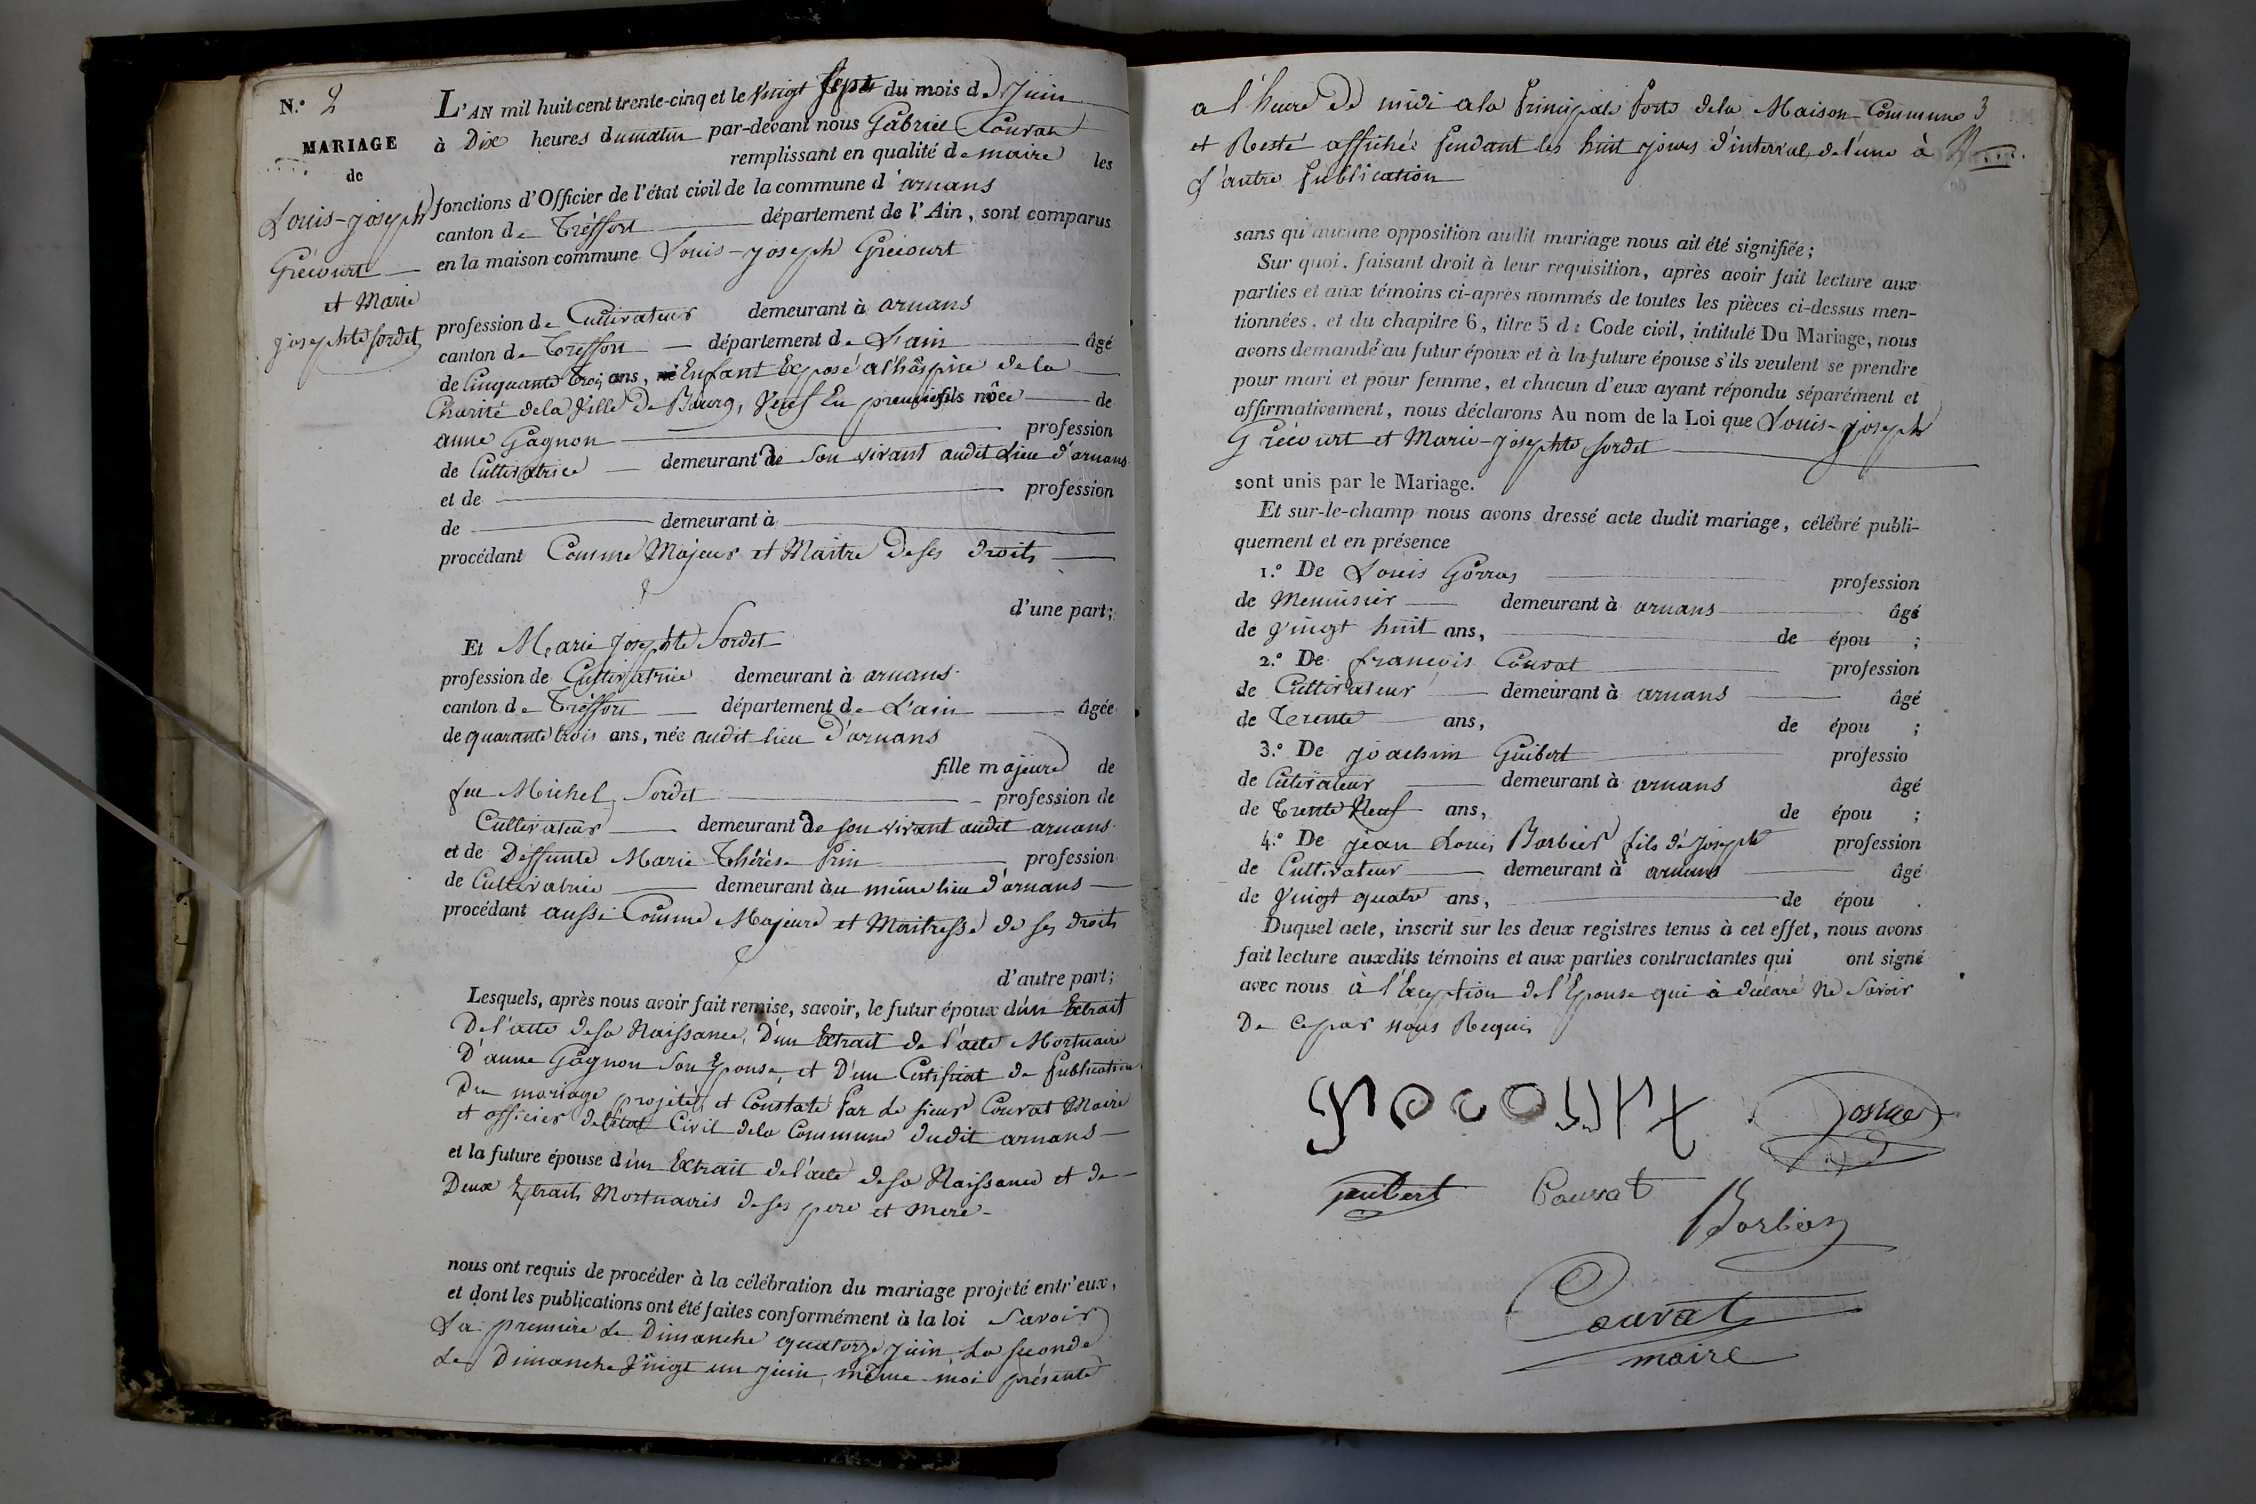 N.° 2
MARIAGE
de
Louis-joseph
Grécourt
et Marie
josephte Sordet
L'AN mil huit cent trente-cinq et le vingt sept du mois de Juin
à Dix heures du matin par-devant nous Gabriel Couvat
remplissant en qualité de maire les
fonctions d'Officier de l'état civil de la commune d'arnans
canton de Tréffort département de l'Ain, sont comparus
en la maison commune Louis-joseph Grécourt
profession de Cultivateur demeurant à arnans
canton de Tréffort département de L'ain âgé
de Cinquante trois ans, né Enfant Exposé a l'hospice de la
Charité de la Ville de Bourg, Veuf En premiere fils nôce de
anne Gagnon profession
de Cultivatrice demeurant de Son vivant audit Lieu d'arnans
et de profession
de demeurant à
procédant Comme Majeur et Maitre de ses droits
d'une part;
Et Marie Josephte Sordet
profession de Cultivatrice demeurant à arnans
canton de Tréffort département de L'ain âgée
de quarante trois ans, née audit lieu d'arnans
fille majeure de
feu Michel Sordet profession de
Cultivateur demeurant de son vivant audit arnans
et de Deffunte Marie Thérèse Prin profession
de Cultivatrice demeurant àu même lieu d'arnans
procédant aussi Comme Majeure et Maitresse de ses droits
d'autre part;
Lesquels, après nous avoir fait remise, savoir, le futur époux d'un Extrait
De l'acte de sa Naissance, D'un Extrait de l'acte Mortuaire
D'anne Gagnon Son Epouse, et D'un Certificat de Publication
Du mariage projeté, et Constaté Par Le sieur Couvat Maire
et officier de l'état Civil de la Commune dudit arnans
et la future épouse d'un Extrait de l'acte de sa Naissance et de
Deux Extraits Mortuaires de ses pere et mere
nous ont requis de procéder à la célébration du mariage projeté entr'eux,
et dont les publications ont été faites conformément à la loi Savoir
La premiere Le Dimanche quatorze juin La seconde
Le Dimanche Vingt un juin, même moi présente
a l'heure De midi a la Principale Porte de la Maison Commune 3
et Resté affiché pendant les huit jours d'interval de l'une à
L'autre Publication
sans qu'aucune opposition audit mariage nous ait été signifiée;
Sur quoi, faisant droit à leur requisition, après avoir fait lecture aux
parties et aux témoins ci-après nommés de toutes les pièces ci-dessus men-
tionnées, et du chapitre 6, titre 5 du Code civil, intitulé Du Mariage, nous
avons demandé au futur époux et à la future épouse s'ils veulent se prendre
pour mari et pour femme, et chacun d'eux ayant répondu séparément et
affirmativement, nous déclarons Au nom de la Loi que Louis-joseph
Grécourt et Marie-josephte Sordet
sont unis par le Mariage.
Et sur-le-champ nous avons dressé acte dudit mariage, célébré publi-
quement et en présence
1.° De Louis profession
de Menuisier demeurant à arnans âgé
de Vingt huit ans, de épou ;
2.° De françois Couvat profession
de Cultivateur demeurant à arnans âgé
de Trente ans, de épou ;
3.° De joachim Guibert professio
de Cultivateur demeurant à arnans âgé
de Trente Neuf ans, de épou ;
4.° De jean Louis Borbier fils de Joseph profession
de Cultivateur demeurant à arnans âgé
de Vingt quatre ans, de épou .
Duquel acte, inscrit sur les deux registres tenus à cet effet, nous avons
fait lecture auxdits témoins et aux parties contractantes qui ont signé
avec nous à l'Exception de l'Epouse qui à déclaré Ne Savoir
De ce par nous Requis
grecourt
guibert Couvat
Borbier
Couvat
maire